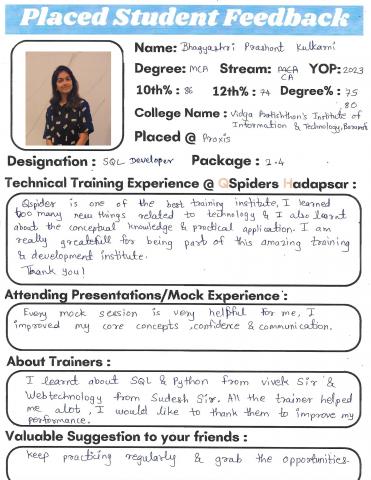 Placed Student Feedback
Name: Bhagyashri Prashant Kulkarni
Degree: MCA Stream: MCA YOP: 2023
CA
10th% : 86 12th% : 74 Degree% : 75
80
College Name : Vidya Pratishthan's Institute of
Information & Technology, Baramati
Placed @ Praxis
Designation : SQL Developer Package : 2.4
Technical Training Experience @ QSpiders Hadapsar :
Qspider is one of the best training institute, I learned
too many new things related to technology & I also learnt
about the conceptual knowledge & practical application. I am
really greatefull for being part of this amazing training
& development institute.
Thank you!
Attending Presentations/Mock Experience :
Every mock session is very helpful for me, I
improved my core concepts, confidence & communication.
About Trainers :
I learnt about SQL & Python from vivek Sir &
Webtechnology from Sudesh Sir. All the trainer helped
me alot, I would like to thank them to improve my
performance.
Valuable Suggestion to your friends :
keep practicing regularly & grab the opportunities.